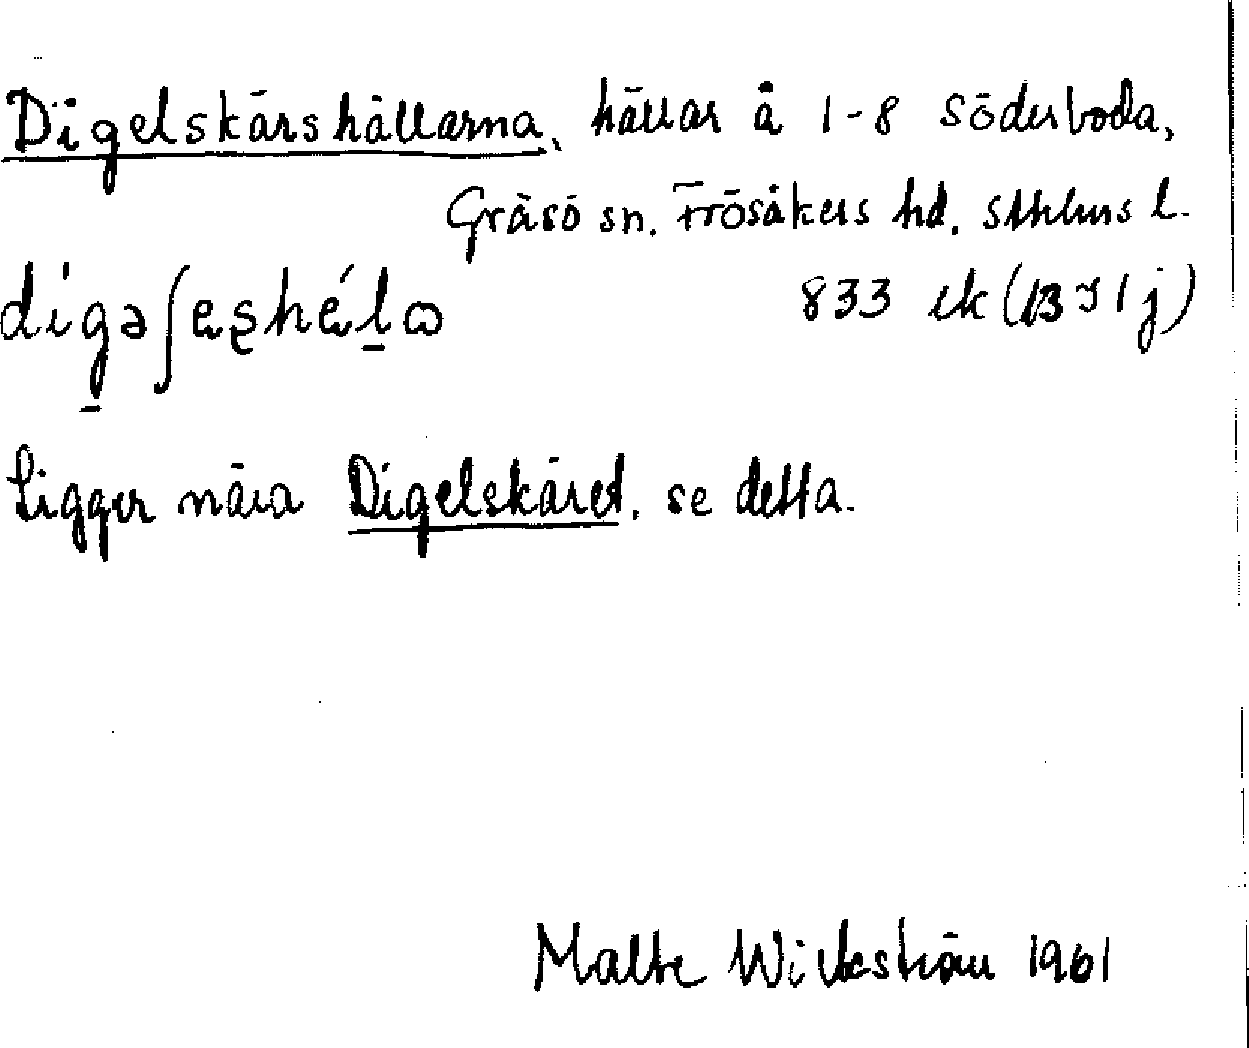 Digelskärshällarna, hällar å 1-8 Söderboda,
Gräsö sn. Frösåkers hd. Sthlms l.
833 ek (13I1j)
Ligger nära Digelskäret, se detta.
Malte Wickström 1961